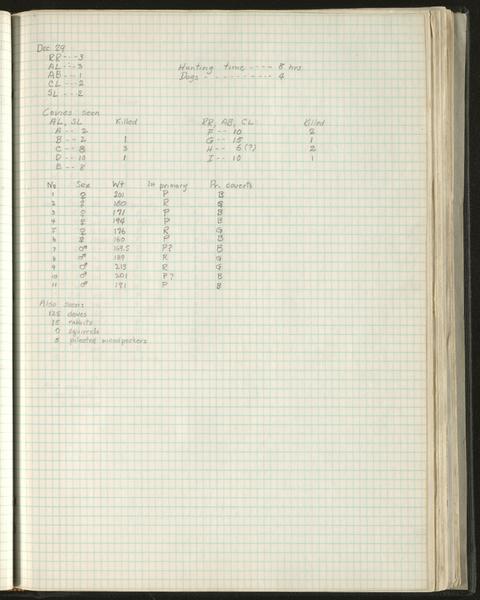 Dec 29
RR---3
AL---3 Hunting time ---- 8 hrs
AB---1 Dogs ---------- 4
CL---2
SL---2
Covies seen
AL, SL Killed RR, AB, CL Killed
A -- 2 F -- 10 2
B -- 2 1 G -- 15 1
C -- 8 3 H -- 6(?) 2
D -- 10 1 I -- 10 1
E -- 8
No Sex Wt In primary Pr. coverts
1 ♀ 201 P B
2 ♀ 180 R G
3 ♀ 171 P B
4 ♀ 194 P B
5 ♀ 176 R G
6 ♀ 160 P B
7 ♂ 169.5 P? B
8 ♂ 189 R G
9 ♂ 213 R G
10 ♂ 201 P? B
11 ♂ 191 P B
Also seen:
125 doves
15 rabbits
0 squirrels
5 pileated woodpeckers